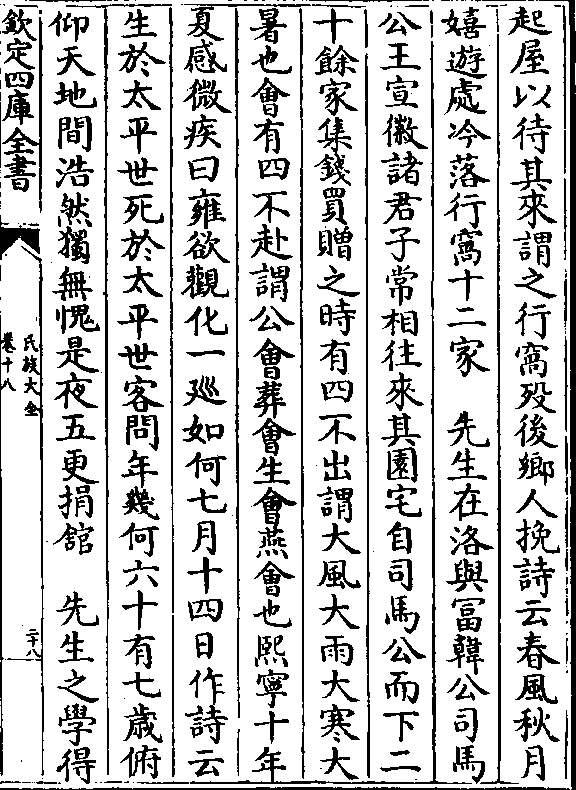 起屋以待其來謂之行窩殁後鄉人挽詩云春風秋月
嬉遊處冷落行窩十二家　先生在洛與冨韓公司馬
公王宣徽諸君子常相往來其園宅自司馬公而下二
十餘家集錢買贈之時有四不出謂大風大雨大寒大
暑也會有四不赴謂公會葬會生會燕會也熙寧十年
夏感微疾曰雍欲觀化一廵如何七月十四日作詩云
生於太平世死於太平世客問年幾何六十有七歲俯
仰天地間浩然獨無愧是夜五更捐舘　先生之學得
欽定四庫全書
氏族大全
卷十八
二十八